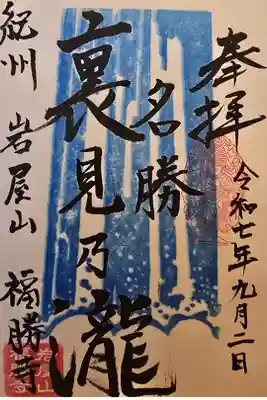 奉拝
令和七年九月二日
名勝
裏見乃瀧
紀州 岩屋山 福勝寺